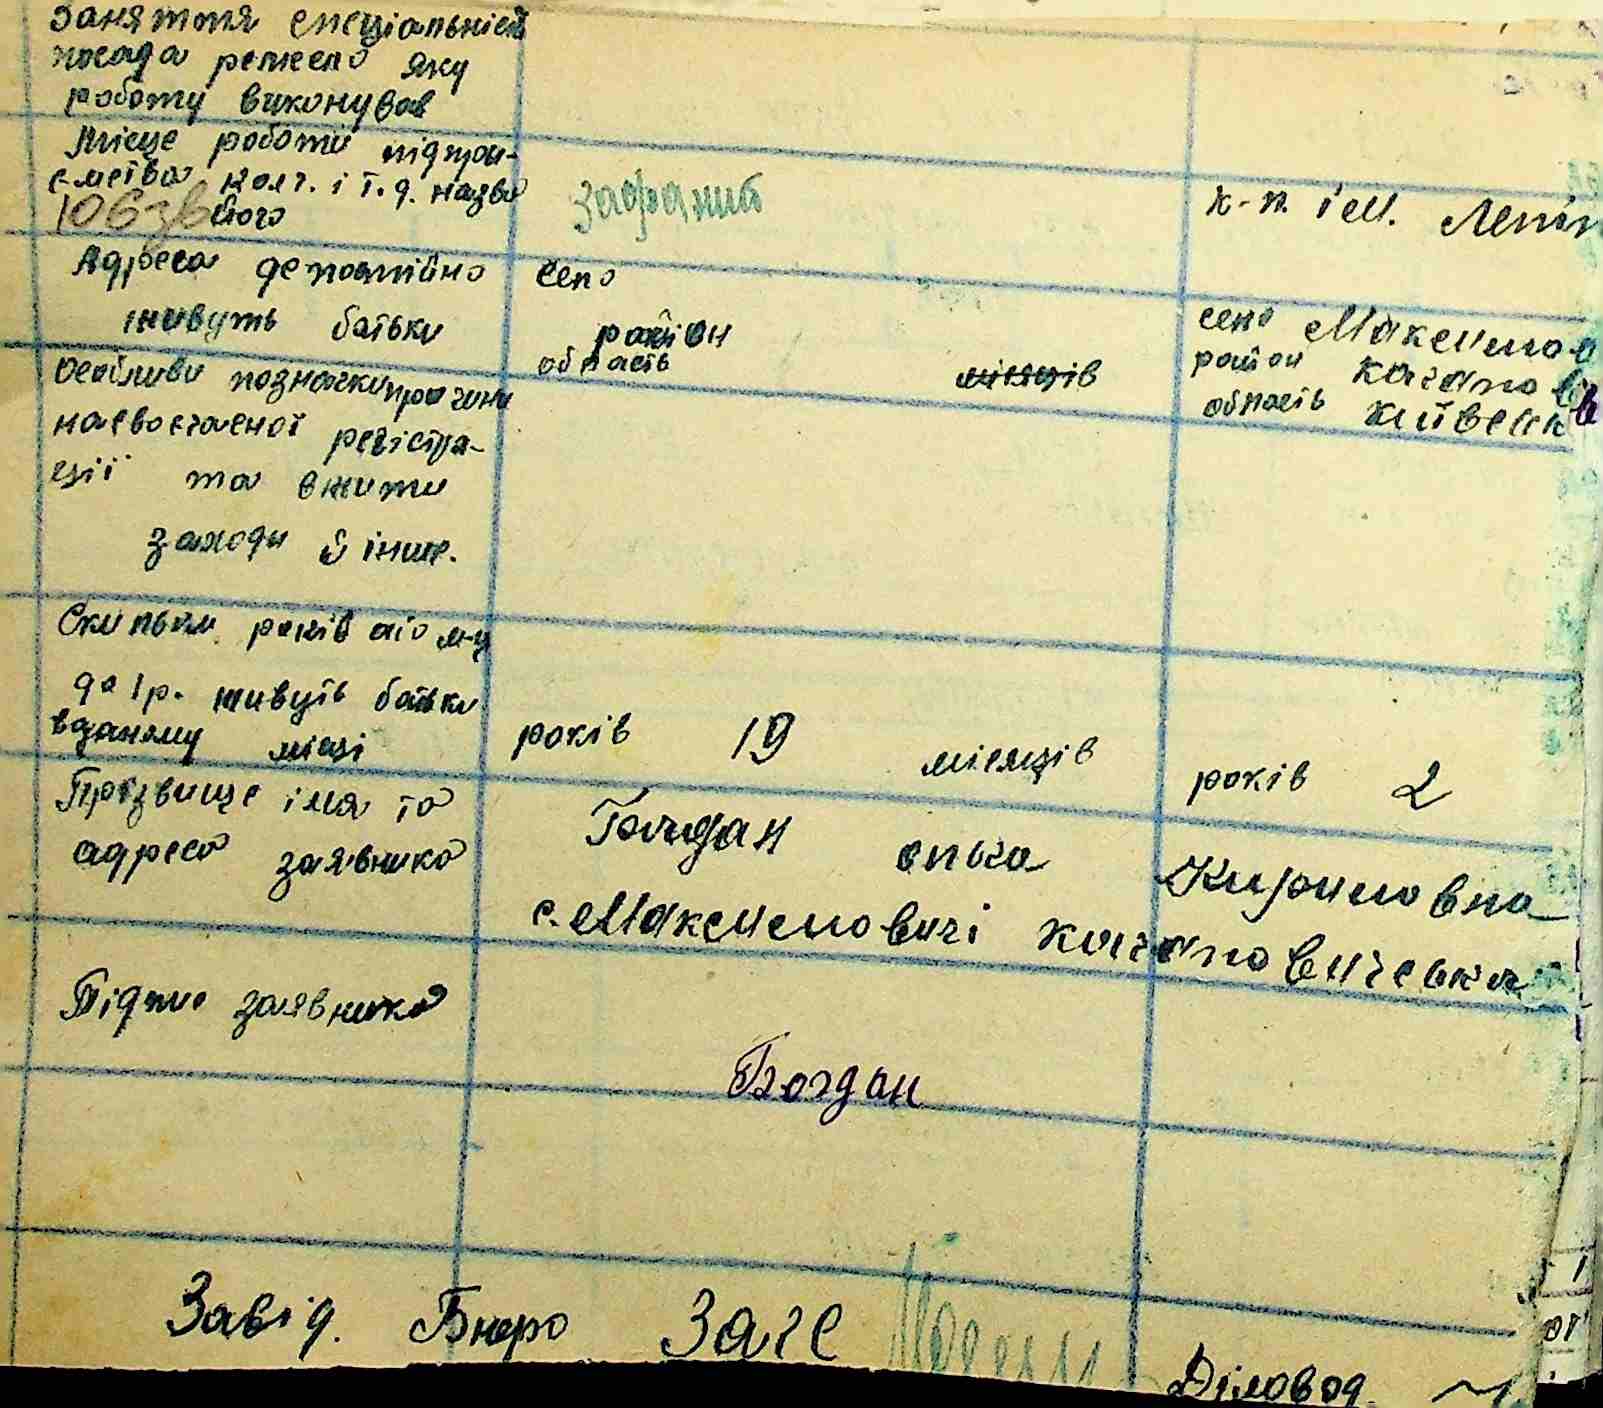 Заняття спеціальність
посада ремесло яку
роботу виконував
Місце роботи підпри-
ємства колг. і т.д. назва
його
к-п. ім. Леніна
Адреса де постійно
живуть батьки
село
район
область
місяців
село Максимо
район Кагано
область Київськ
Особливи позначки причини
несвоєчасної регістра-
ції та вжити
заходи й інше.
Скільки років або м-ц
до 1 р. живуть батьки
в даному місці
років 19 місяців
років 2
Прізвище імя та
адреса заявника
Богдан Ольга Кириловна
с. Максимовичі Кагановичськи
Підпис заявника
Богдан
Завід. Бюро Загс
Діловод.